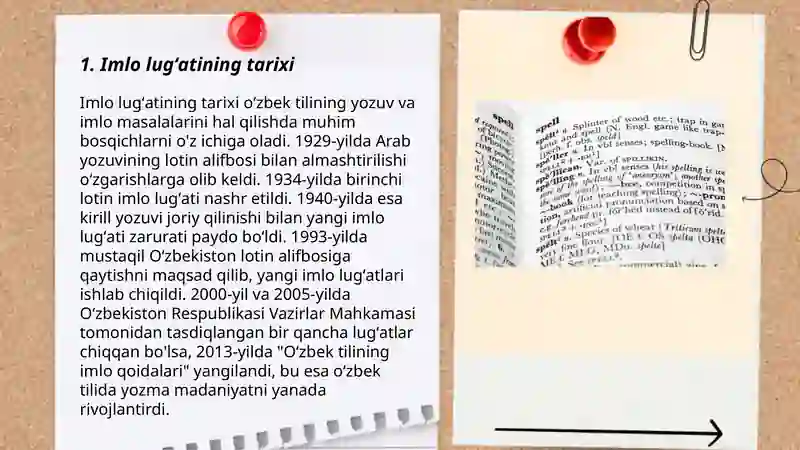 1. Imlo lugʻatining tarixi
Imlo lugʻatining tarixi oʻzbek tilining yozuv va
imlo masalalarini hal qilishda muhim
bosqichlarni o'z ichiga oladi. 1929-yilda Arab
yozuvining lotin alifbosi bilan almashtirilishi
oʻzgarishlarga olib keldi. 1934-yilda birinchi
lotin imlo lugʻati nashr etildi. 1940-yilda esa
kirill yozuvi joriy qilinishi bilan yangi imlo
lugʻati zarurati paydo boʻldi. 1993-yilda
mustaqil Oʻzbekiston lotin alifbosiga
qaytishni maqsad qilib, yangi imlo lugʻatlari
ishlab chiqildi. 2000-yil va 2005-yilda
Oʻzbekiston Respublikasi Vazirlar Mahkamasi
tomonidan tasdiqlangan bir qancha lugʻatlar
chiqqan bo'lsa, 2013-yilda "Oʻzbek tilining
imlo qoidalari" yangilandi, bu esa oʻzbek
tilida yozma madaniyatni yanada
rivojlantirdi.
spell
spell
Splinter of wood etc.; trap in
and spell (N. Engl. game like trap-
In vbl senses; spelling-book.
Var. of SPILLIKIN.
In vbl senses (his spelling is
of the spelling of
competition in
(for teaching spelling);
artificial pronunciation based on
instead of
Species of wheat
very fine flour.